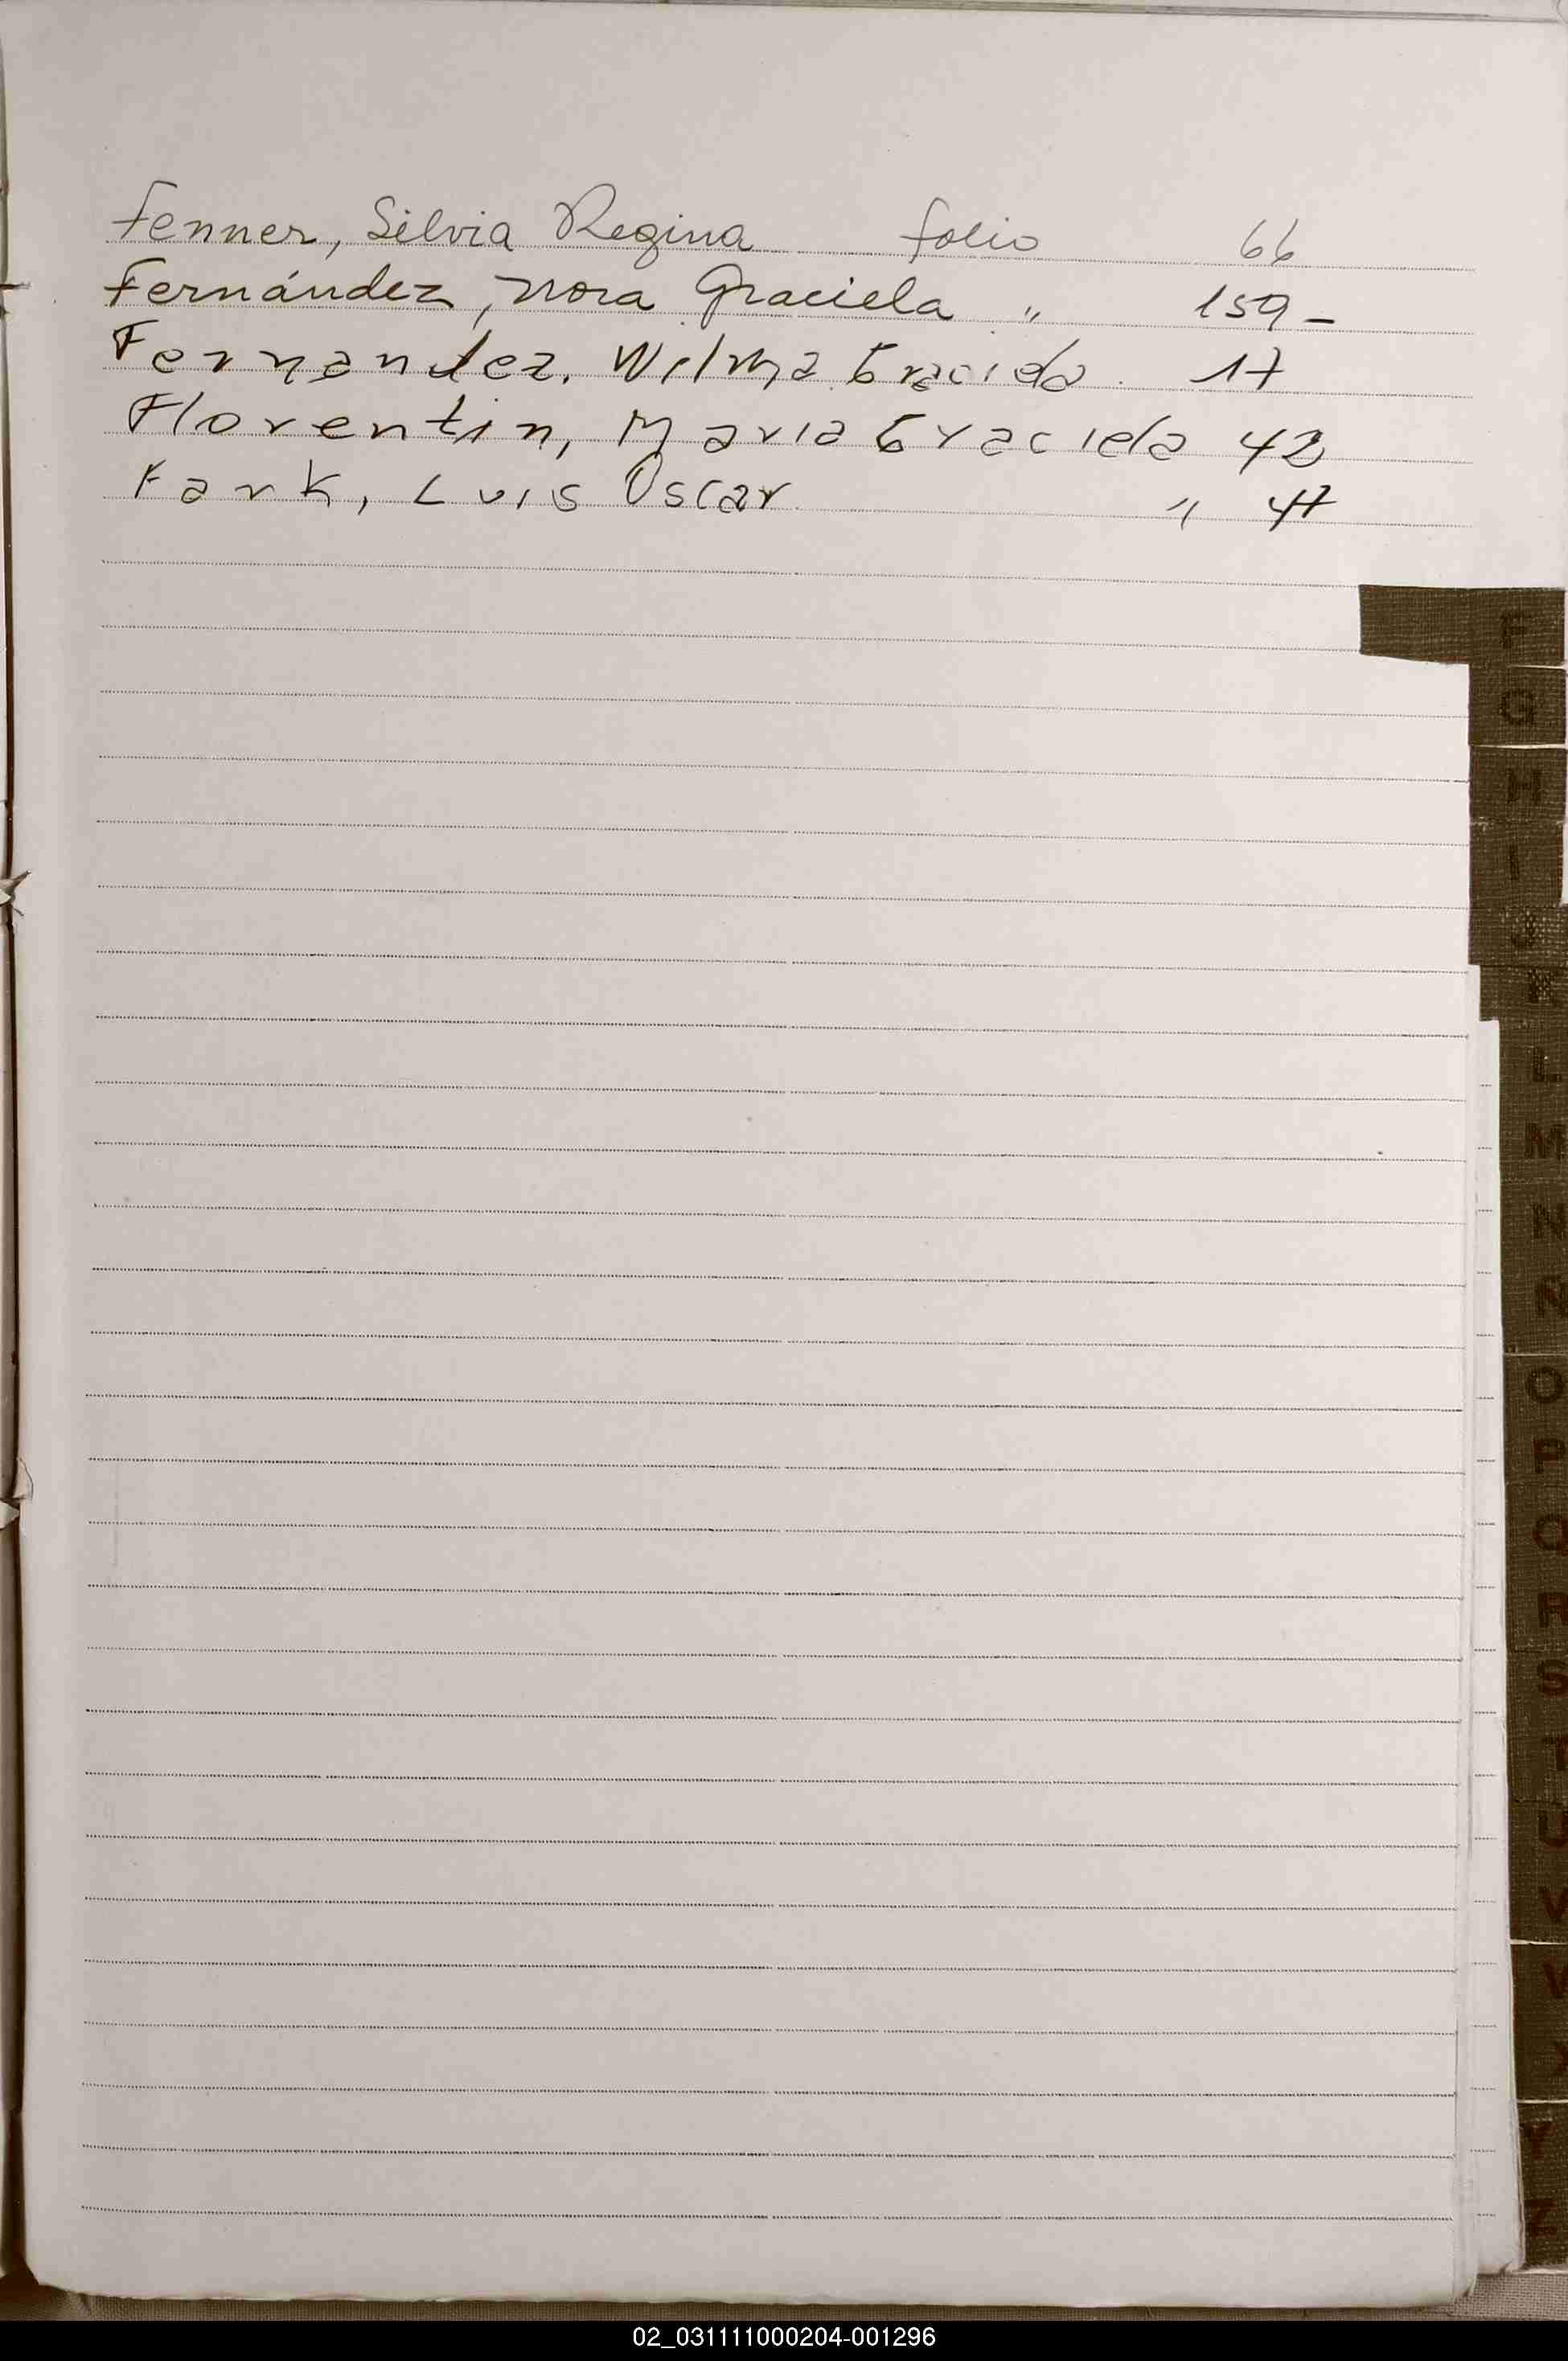 Fenner, Silvia Regina folio 66
Fernández, Nora Graciela " 159-
Fernandez, Wilma Graciela. 17
Florentin, Maria Graciela 42
Fark, Luis Oscar " 47
F
G
H
I
J
K
L
M
N
Ñ
O
P
Q
R
S
T
U
V
W
X
Y
Z
02_031111000204-001296